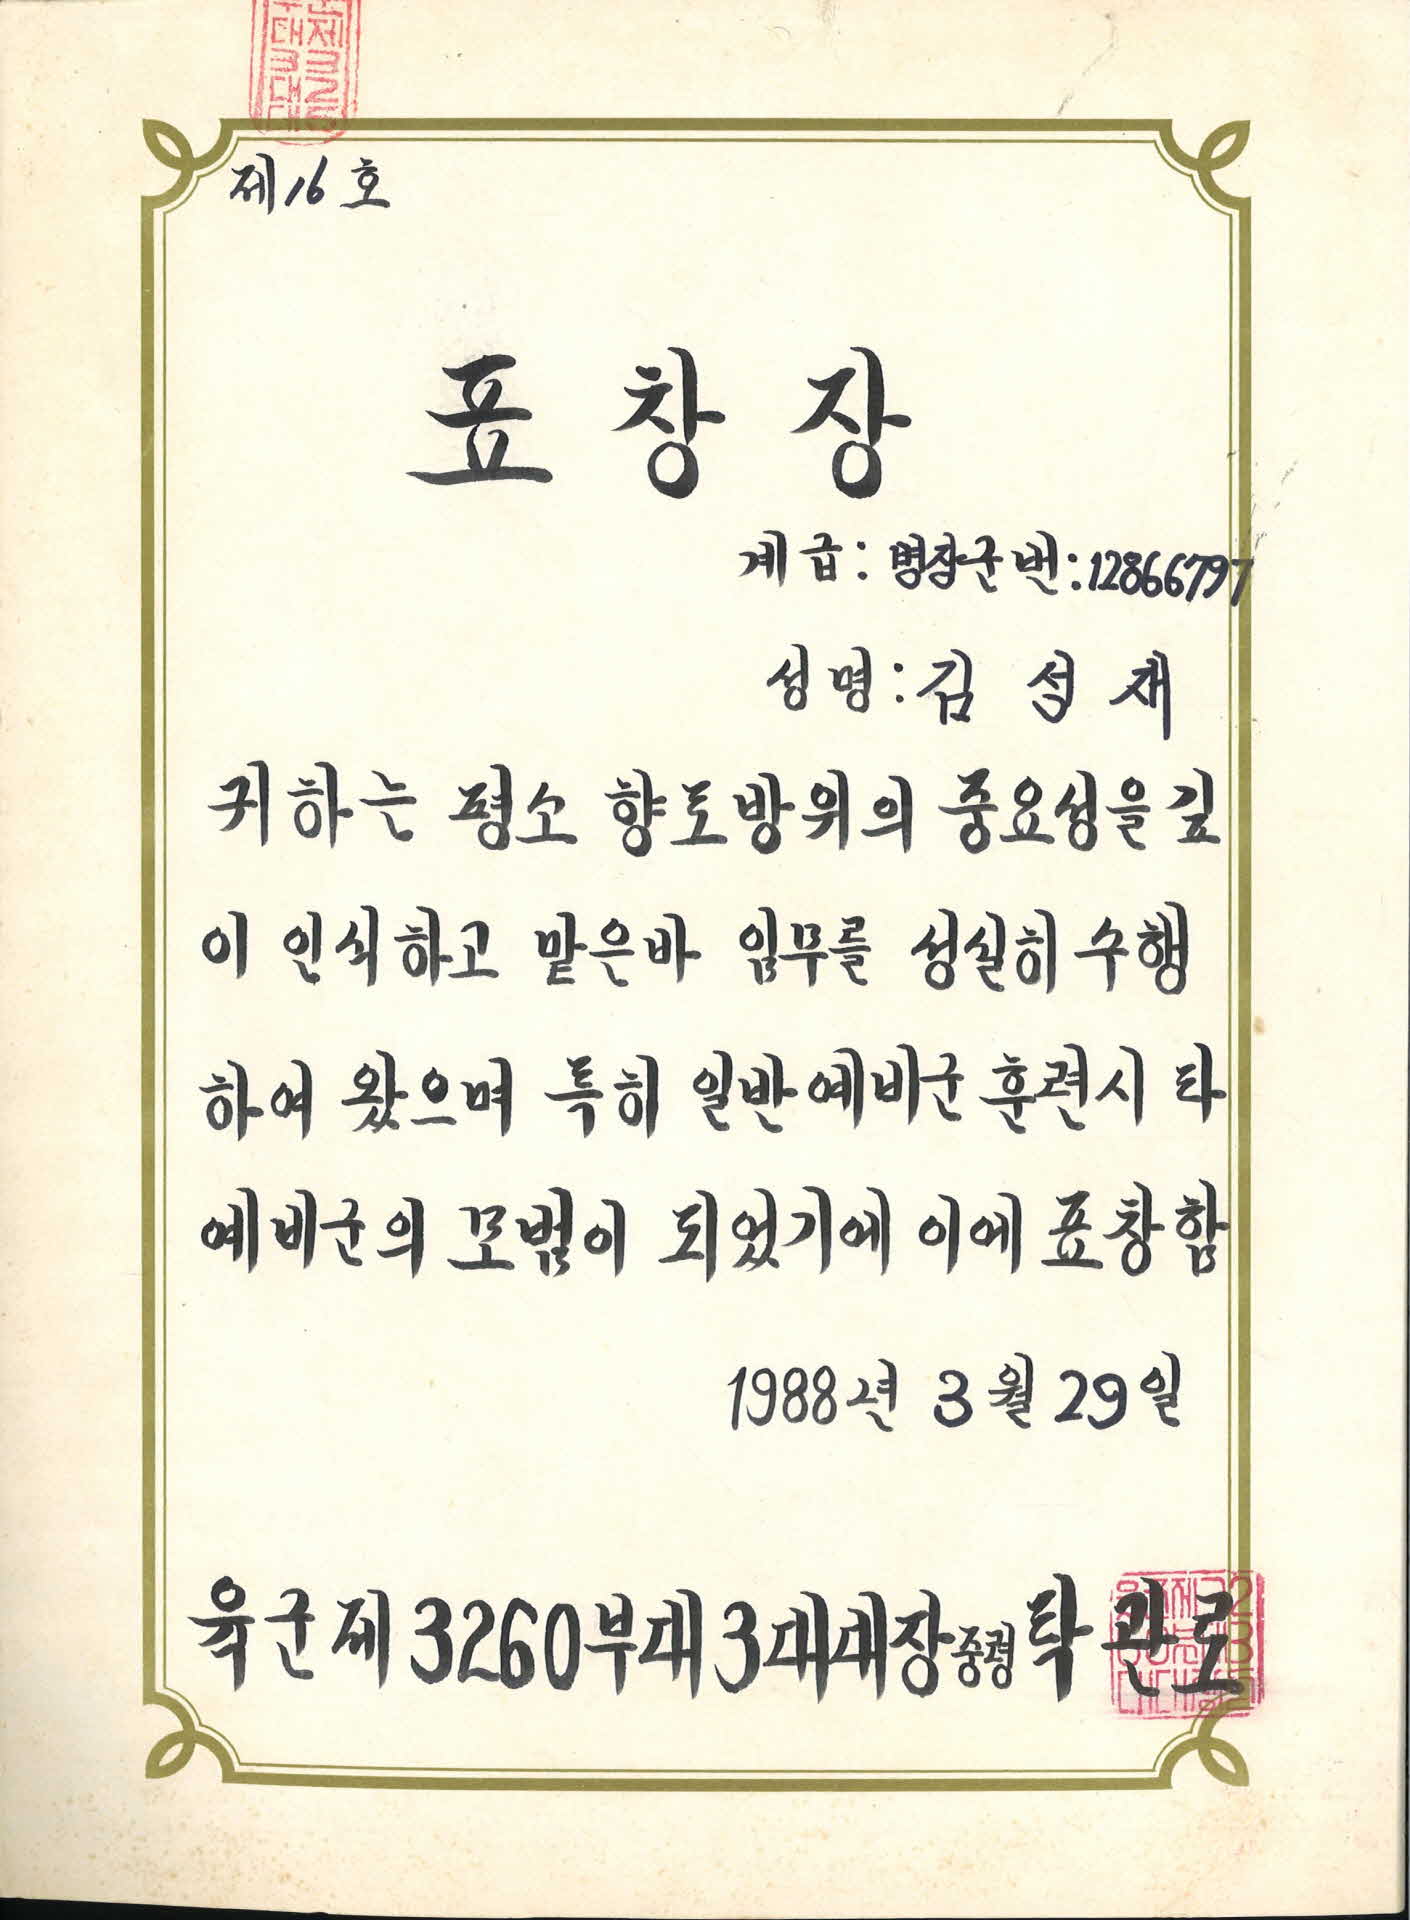 제16호
표창장
계급: 병장 군번: 12866797
성명: 김성재
귀하는 평소 향토방위의 중요성을 깊
이 인식하고 맡은바 임무를 성실히 수행
하여 왔으며 특히 일반예비군 훈련시 타
예비군의 모범이 되었기에 이에 표창함
1988년 3월 29일
육군제3260부대3대대장 중령 탁관로